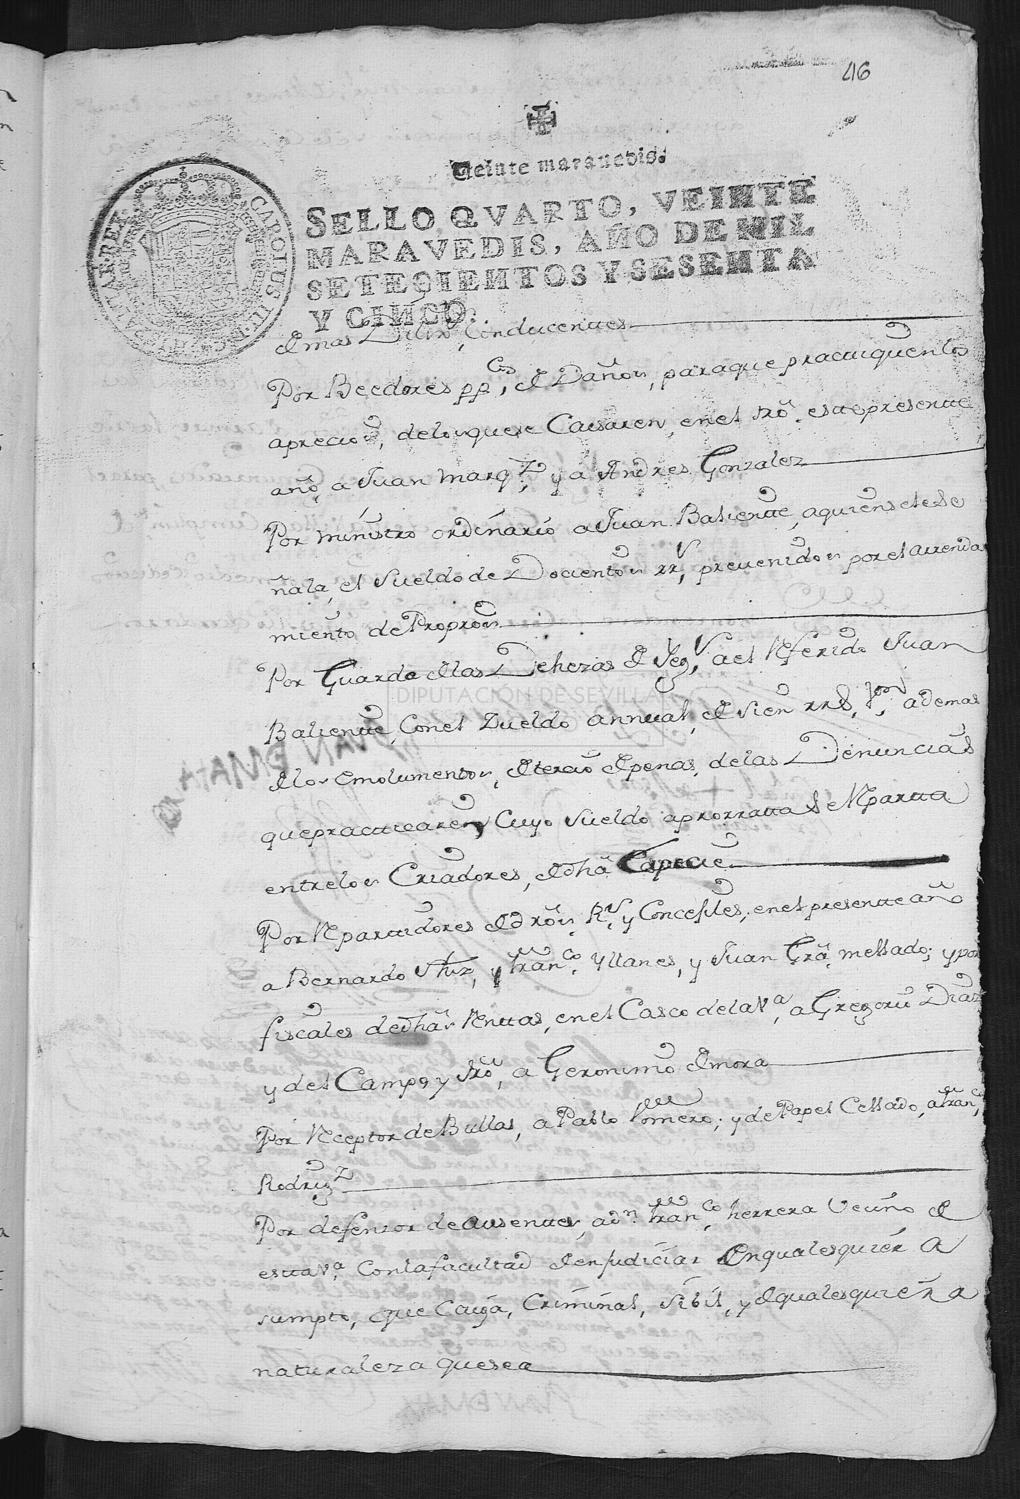 46
Veinte maravedis.
SELLO QVARTO, VEINTE
MARAVEDIS, AÑO DE MIL
SETECIENTOS Y SESENTA
Y CINCO.
CAROLUS III
HISPANIAR REX
Por Beedores pp.cos, de Daños, para que practiquen los
aprecios, de los que se Causaren, en el tro. este presente
año, a Juan Marqz, y a Andres Gonzalez
Por Ministro ordinario a Juan Baliente, a quien se le se
ñala, el Sueldo de Docientos rrs, prevenidos por el arrenda
miento de Propios
Por Guarda de las Dehezas de Yegs, a el Referido Juan
Baliente, Con el Zueldo annual, de Sien rrs, ademas
de los emolumentos, de tercio de penas, de las Denuncias
que practicaren, Cuyo Sueldo a prorratta Se Repartta
entre los Criadores, de dha Especie
Por Repartidores de dros Rs, y Concejiles, en el presente año
a Bernardo Ruiz, y Franco Yllanes, y Juan Gra mellado; y por
fiscales de dhas Renttas, en el Casco de la Va, a Gregorio Diaz
y del Campo, y tro, a Geronimo de mora
Por Receptor de Bullas, a Pablo Romero; y de Papel Cellado, a Franco
Rodrigz
Por defensor de Ausentes, a Dn Franco herrera Vecino de
estta Va, Con la facultad de enjudiciar en qualesquier A
sumpto, que Cayga, Criminal, Sibil, y de qualesquiera
naturaleza que sea
DIPUTACIÓN DE SEVILLA